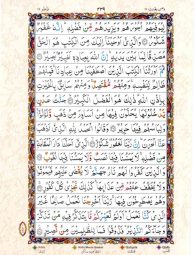 لِيُوَفِّيَهُمْ اُجُوْرَهُمْ وَيَزِيْدَهُمْ مِّنْ فَضْلِهٖ اِنَّهٗ غَفُوْرٌ
شَكُوْرٌ وَالَّذِيْٓ اَوْحَيْنَآ اِلَيْكَ مِنَ الْكِتٰبِ هُوَ الْحَقُّ
مُصَدِّقًا لِّمَا بَيْنَ يَدَيْهِ اِنَّ اللّٰهَ بِعِبَادِهٖ لَخَبِيْرٌۢ بَصِيْرٌ
ثُمَّ اَوْرَثْنَا الْكِتٰبَ الَّذِيْنَ اصْطَفَيْنَا مِنْ عِبَادِنَا فَمِنْهُمْ
ظَالِمٌ لِّنَفْسِهٖ وَمِنْهُمْ مُّقْتَصِدٌ وَمِنْهُمْ سَابِقٌۢ بِالْخَيْرٰتِ
بِاِذْنِ اللّٰهِ ذٰلِكَ هُوَ الْفَضْلُ الْكَبِيْرُ جَنّٰتُ عَدْنٍ
يَّدْخُلُوْنَهَا يُحَلَّوْنَ فِيْهَا مِنْ اَسَاوِرَ مِنْ ذَهَبٍ وَّلُؤْلُؤًا
وَلِبَاسُهُمْ فِيْهَا حَرِيْرٌ وَقَالُوا الْحَمْدُ لِلّٰهِ الَّذِيْٓ اَذْهَبَ
عَنَّا الْحَزَنَ اِنَّ رَبَّنَا لَغَفُوْرٌ شَكُوْرٌ الَّذِيْٓ اَحَلَّنَا دَارَ الْمُقَامَةِ
مِنْ فَضْلِهٖ لَا يَمَسُّنَا فِيْهَا نَصَبٌ وَّلَا يَمَسُّنَا فِيْهَا لُغُوْبٌ
وَالَّذِيْنَ كَفَرُوْا لَهُمْ نَارُ جَهَنَّمَ لَا يُقْضٰى عَلَيْهِمْ فَيَمُوْتُوْا
وَلَا يُخَفَّفُ عَنْهُمْ مِّنْ عَذَابِهَا كَذٰلِكَ نَجْزِيْ كُلَّ كَفُوْرٍ
وَهُمْ يَصْطَرِخُوْنَ فِيْهَا رَبَّنَآ اَخْرِجْنَا نَعْمَلْ صَالِحًا غَيْرَ
الَّذِيْ كُنَّا نَعْمَلُ اَوَلَمْ نُعَمِّرْكُمْ مَّا يَتَذَكَّرُ فِيْهِ مَنْ تَذَكَّرَ
وَجَآءَكُمُ النَّذِيْرُ فَذُوْقُوْا فَمَا لِلظّٰلِمِيْنَ مِنْ نَّصِيْرٍ